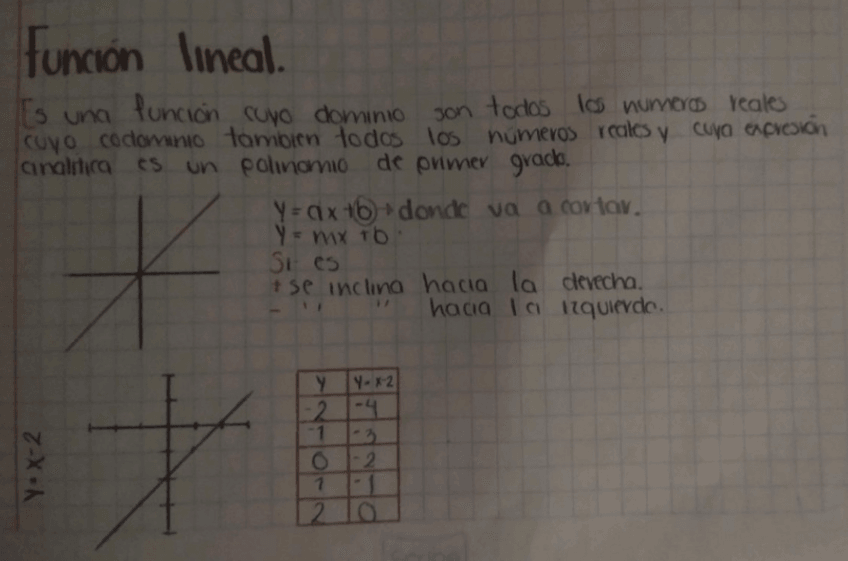 Función lineal.
Es una función cuyo dominio son todos los numeros reales
cuyo codominio tambien todos los números reales y cuya expresión
analitica es un polinomio de primer grado.
y=ax+b→donde va a cortar.
y=mx+b.
Si es
+ se inclina hacia la derecha.
- '' '' hacia la izquierda.
y=x-2
y y=x-2
-2 -4
-1 -3
0 -2
1 -1
2 0